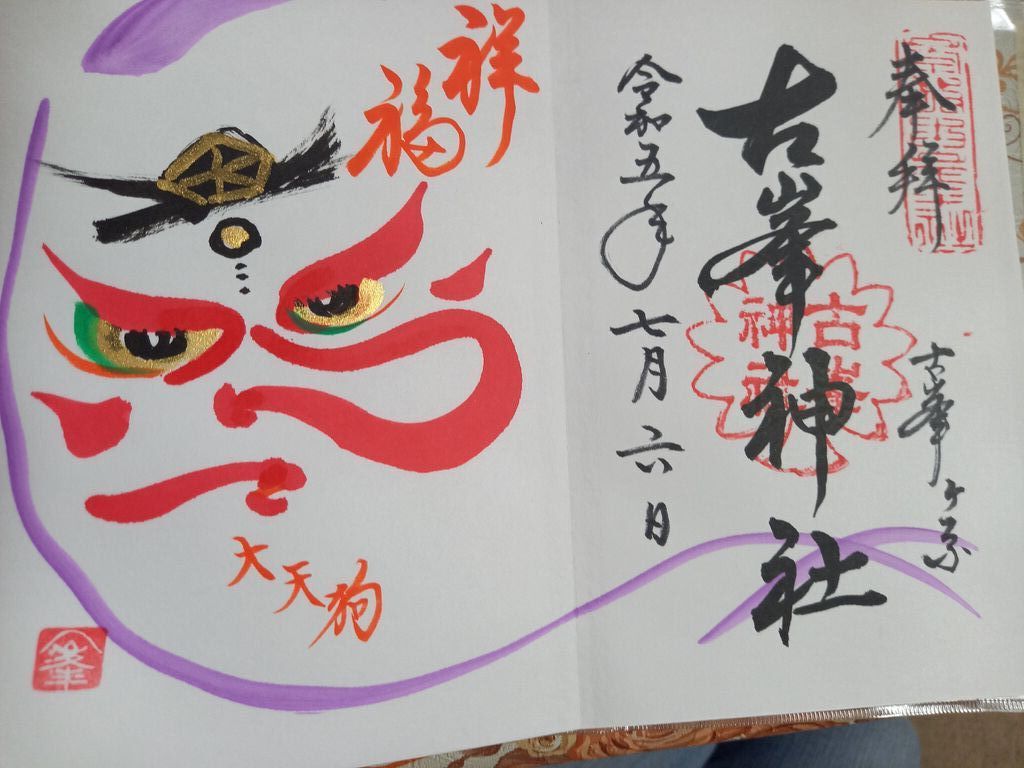 奉拝
古峯ヶ原
古峯神社
古峯
神社
令和五年七月六日
祥福
大天狗
峯